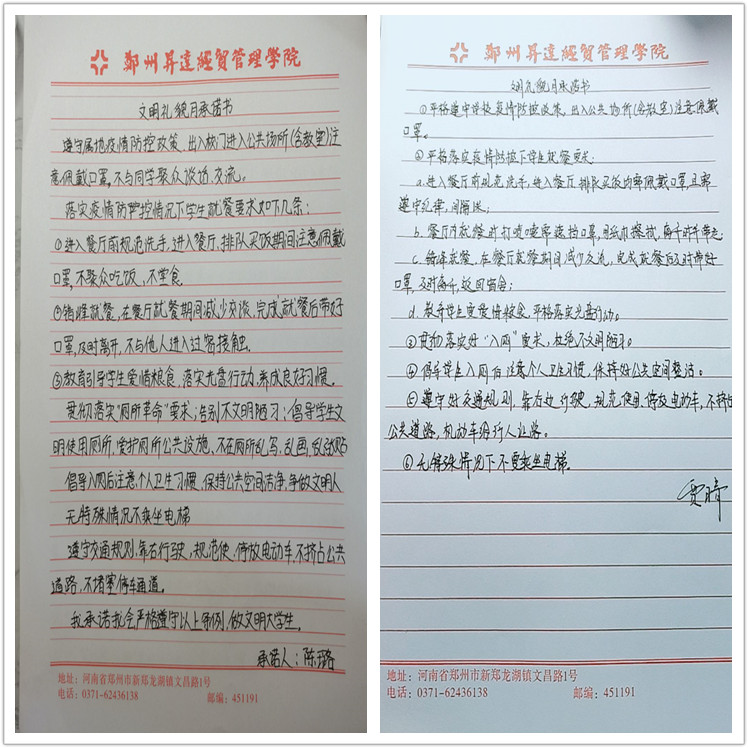 郑州昇达经贸管理学院
文明礼貌月承诺书
遵守属地疫情防控政策、出入校门进入公共场所(含教室)注
意佩戴口罩,不与同学聚众谈话、交流。
落实疫情防控情况下学生就餐要求如下几条:
①进入餐厅前规范洗手,进入餐厅、排队买饭期间注意佩戴
口罩,不聚众吃饭,不堂食。
②错峰就餐,在餐厅就餐期间减少交谈,完成就餐后带好
口罩,及时离开,不与他人进入过密接触。
③教育引导学生爱惜粮食,落实光盘行动,养成良好习惯。
贯彻落实"厕所革命"要求,告别不文明陋习;倡导学生文
明使用厕所,爱护厕所公共设施,不在厕所乱写、乱画、乱涂
倡导入厕后注意个人卫生习惯,保持公共空间洁净,争做文明人
无特殊情况不乘坐电梯
遵守交通规则,靠右行驶,规范使、停放电动车,不挤占公共
道路,不堵塞停车通道。
我承诺我会严格遵守以上条例,做文明大学生。
承诺人:陈璐
地址:河南省郑州市新郑龙湖镇文昌路1号
电话:0371-62436138 邮编:451191
郑州昇达经贸管理学院
文明礼貌月承诺书
①严格遵守学校疫情防控政策,出入公共场所(含教室)注意佩戴
口罩。
②严格落实疫情防控下学生就餐要求:
a.进入餐厅前规范洗手,进入餐厅排队买饭均需佩戴口罩,且需
遵守纪律,间隔
b.餐厅内就餐时打喷嚏需遮挡口罩,用纸巾擦拭,
c.错峰就餐,在餐厅就餐期间减少交流,完成就餐后及时带好
口罩,及时离开,返回宿舍;
d.教育学生爱惜粮食,严格落实光盘行动。
③贯彻落实好"入网"要求,杜绝不文明陋习。
④倡导学生入网后注意个人卫生习惯,保持好公共空间整洁。
⑤遵守好交通规则,靠右边行驶,规范使用、停放电动车,不挤占
公共道路,机动车
⑥无特殊情况下不要乘坐电梯。
贾晴
地址:河南省郑州市新郑龙湖镇文昌路1号
电话:0371-62436138 邮编:451191